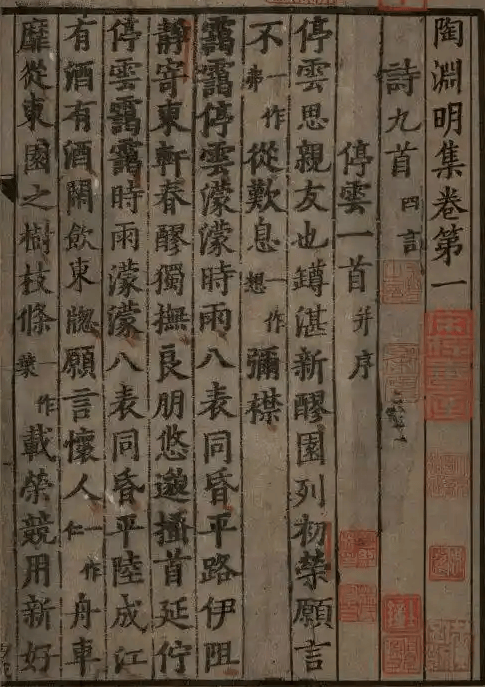 陶淵明集卷第一
詩九首 四言
停雲一首 并序
停雲思親友也罇湛新醪園列初榮願言
不一作弗從歎息一作想彌襟
靄靄停雲濛濛時雨八表同昏平路伊阻
靜寄東軒春醪獨撫良朋悠邈搔首延佇
停雲靄靄時雨濛濛八表同昏平陸成江
有酒有酒閒飲東牕願言懷人一作仁舟車
靡從東園之樹枝條一作葉載榮競用新好